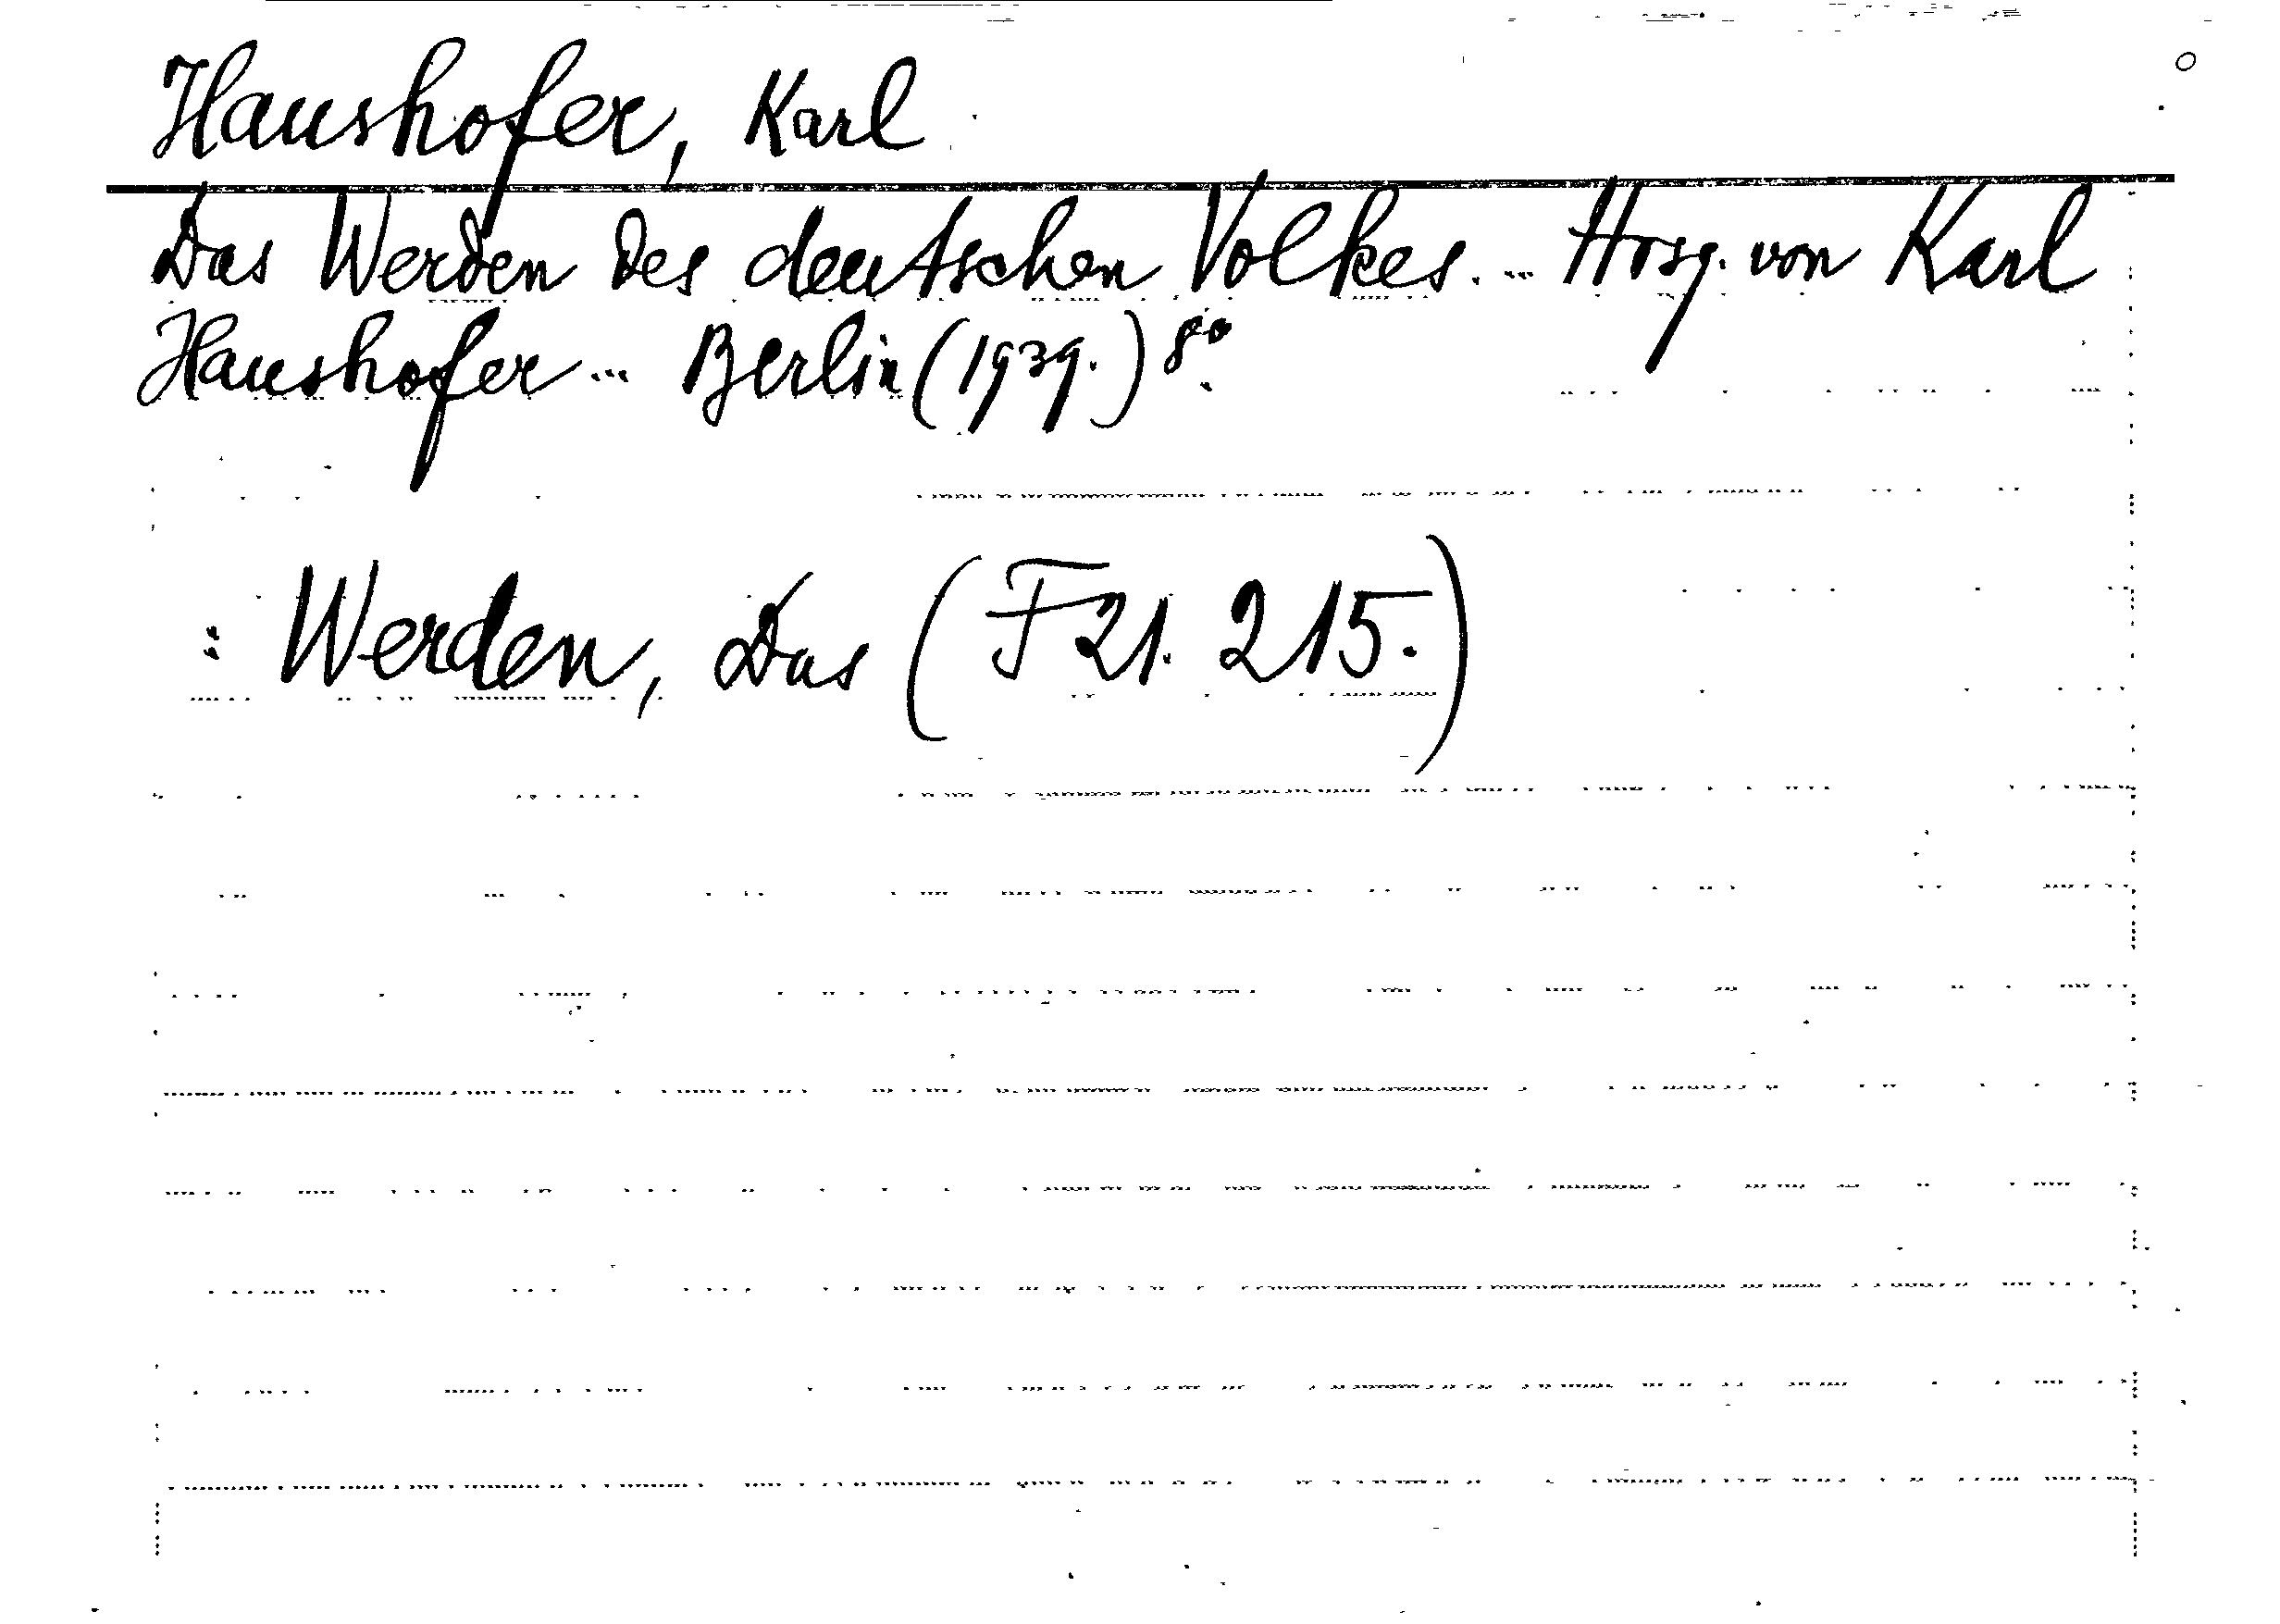 Haushofer, Karl
Das Werden des deutschen Volkes. ... Hrsg. von Karl
Haushofer ... Berlin (1939.) 8°.
: Werden, Das (F 21. 215.)